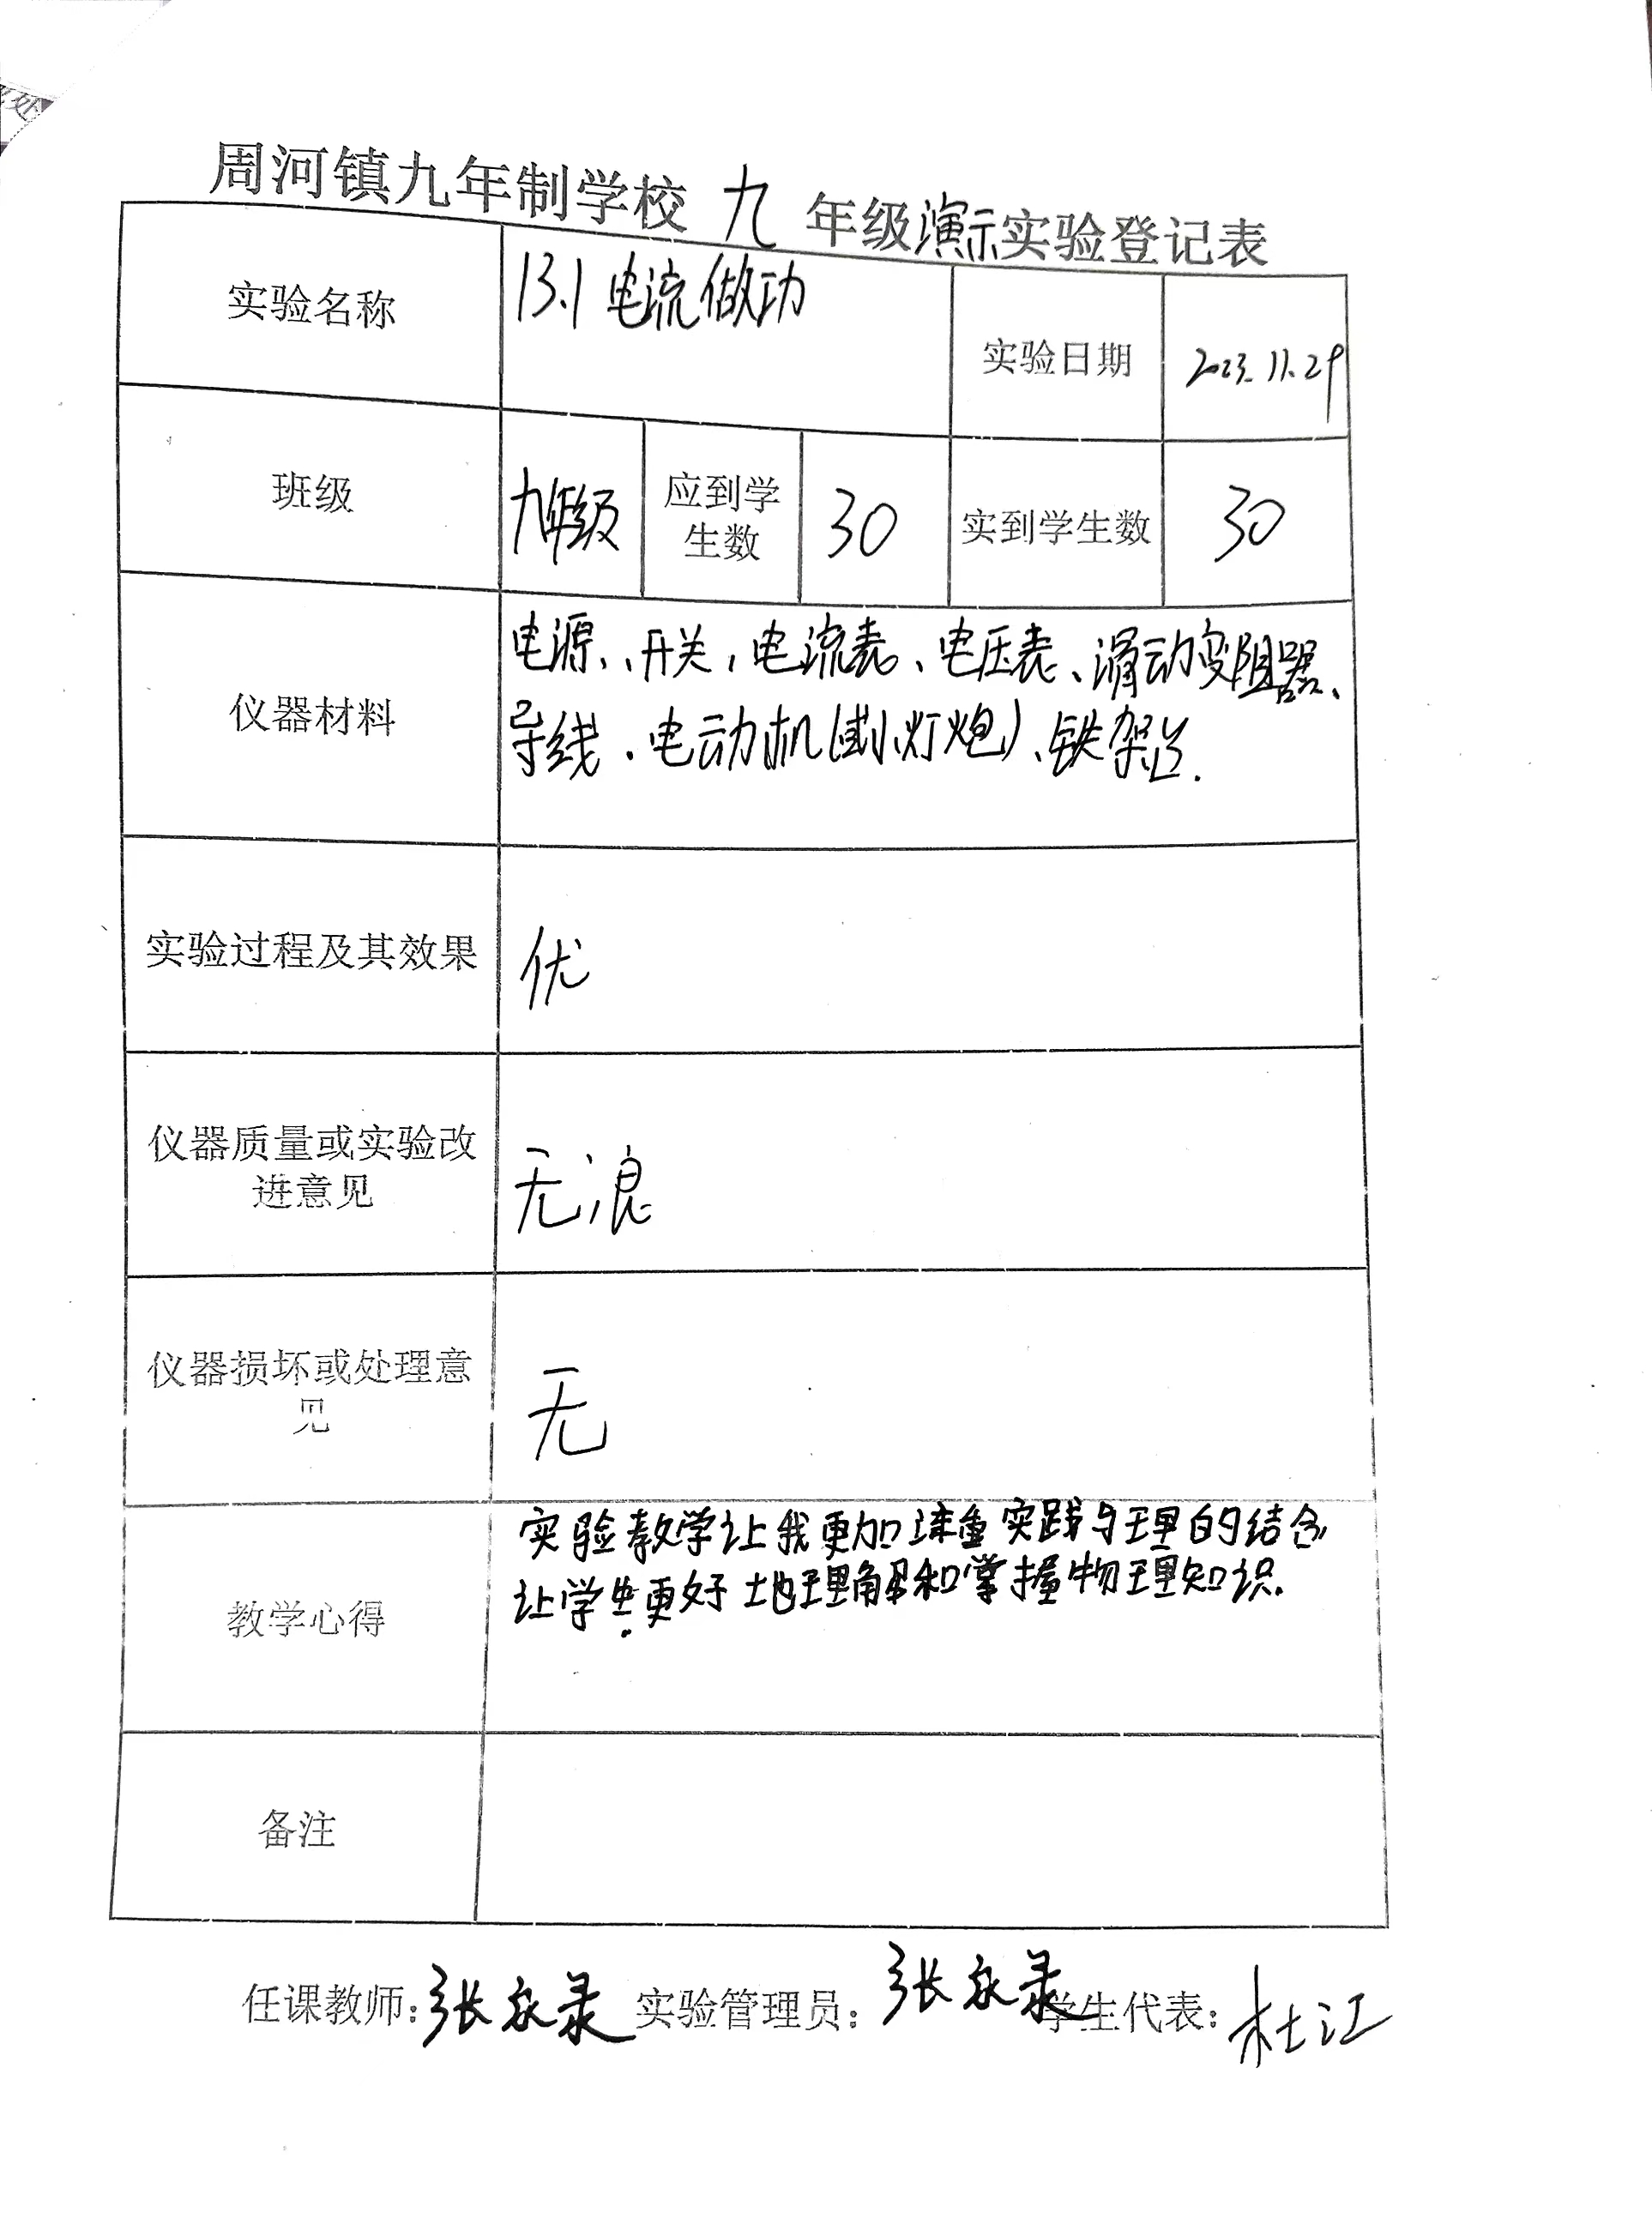 周河镇九年制学校 九 年级演示实验登记表
实验名称 13.1 电流做功 实验日期 2023.11.29
班级 九年级 应到学生数 30 实到学生数 30
仪器材料
电源、、开关、电流表、电压表、滑动变阻器、
导线、电动机(或小灯炮)、铁架台.
实验过程及其效果 优
仪器质量或实验改
进意见
无
仪器损坏或处理意
见
无
教学心得
实验教学让我更加注重实践与理的结合
让学生更好地理解和掌握物理知识.
备注
任课教师:张永录 实验管理员:张永录 学生代表:杜江